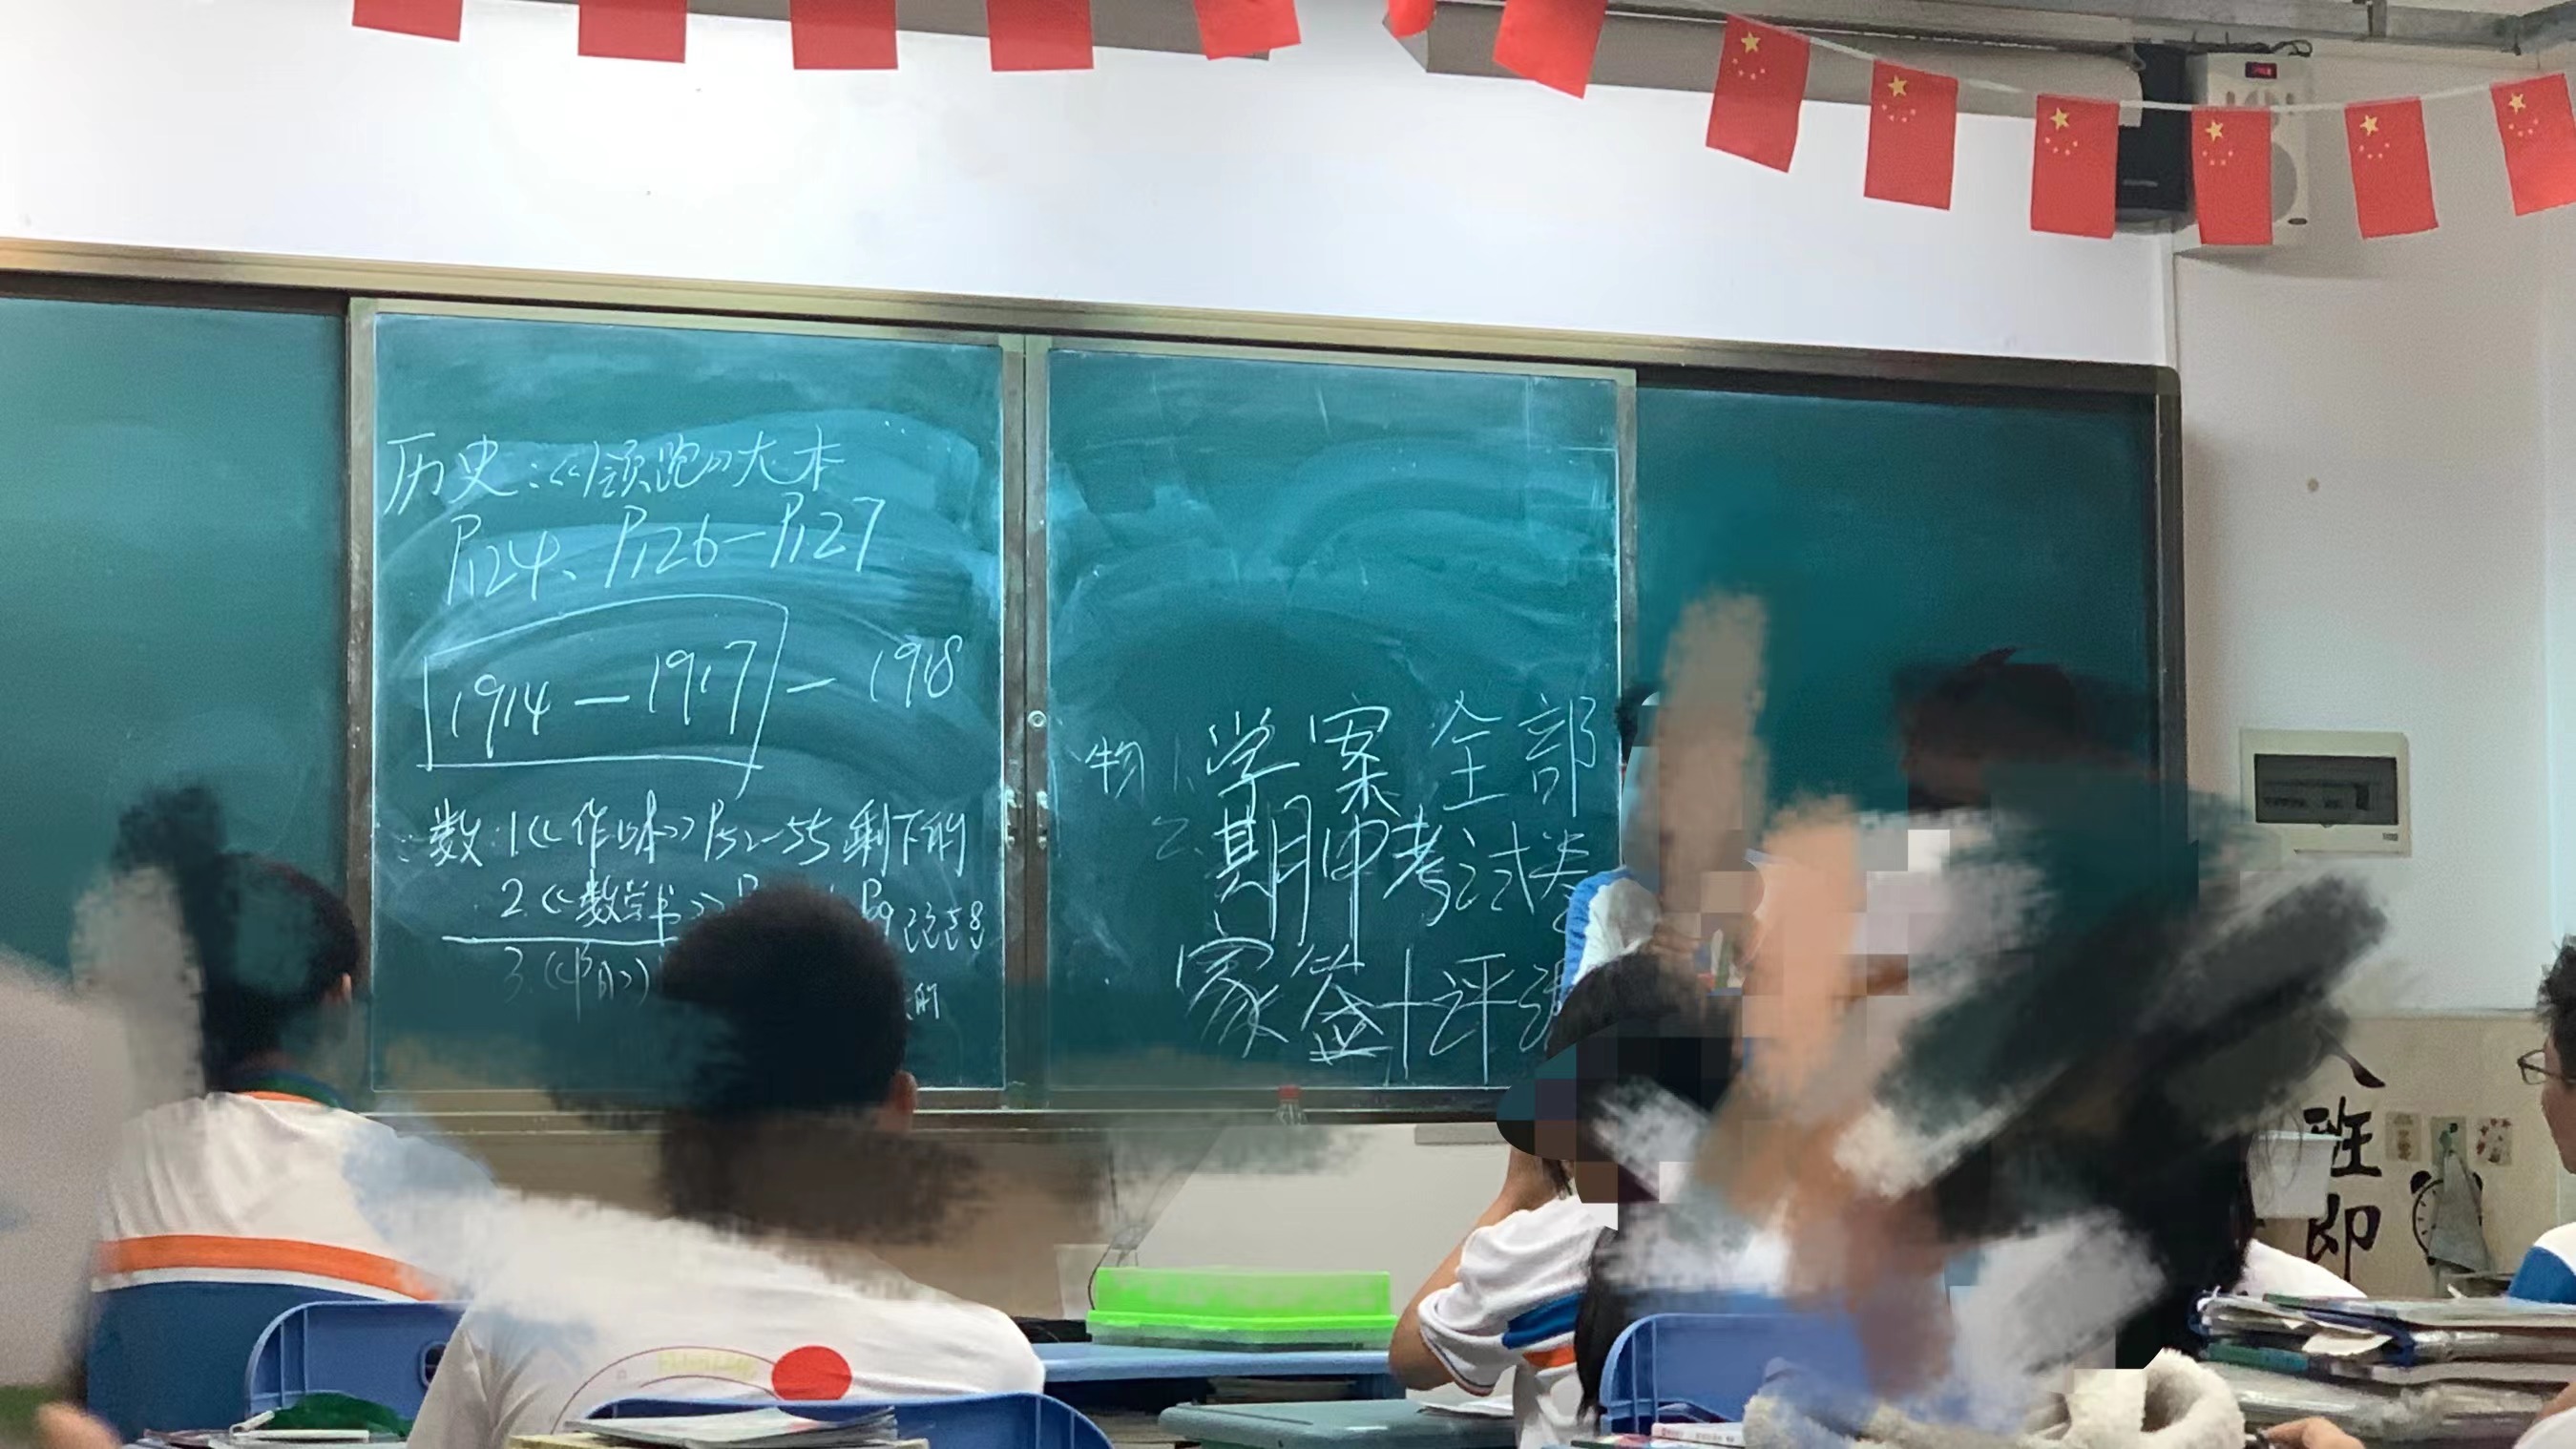 历史:《领跑》大本
P124、P126-P127
1914 - 1917 - 1918
数:1《作业本》P52-55剩下的
2.《数学书》
3.
的
物 1.学案全部
2.期中考试卷
家签+评
班
即